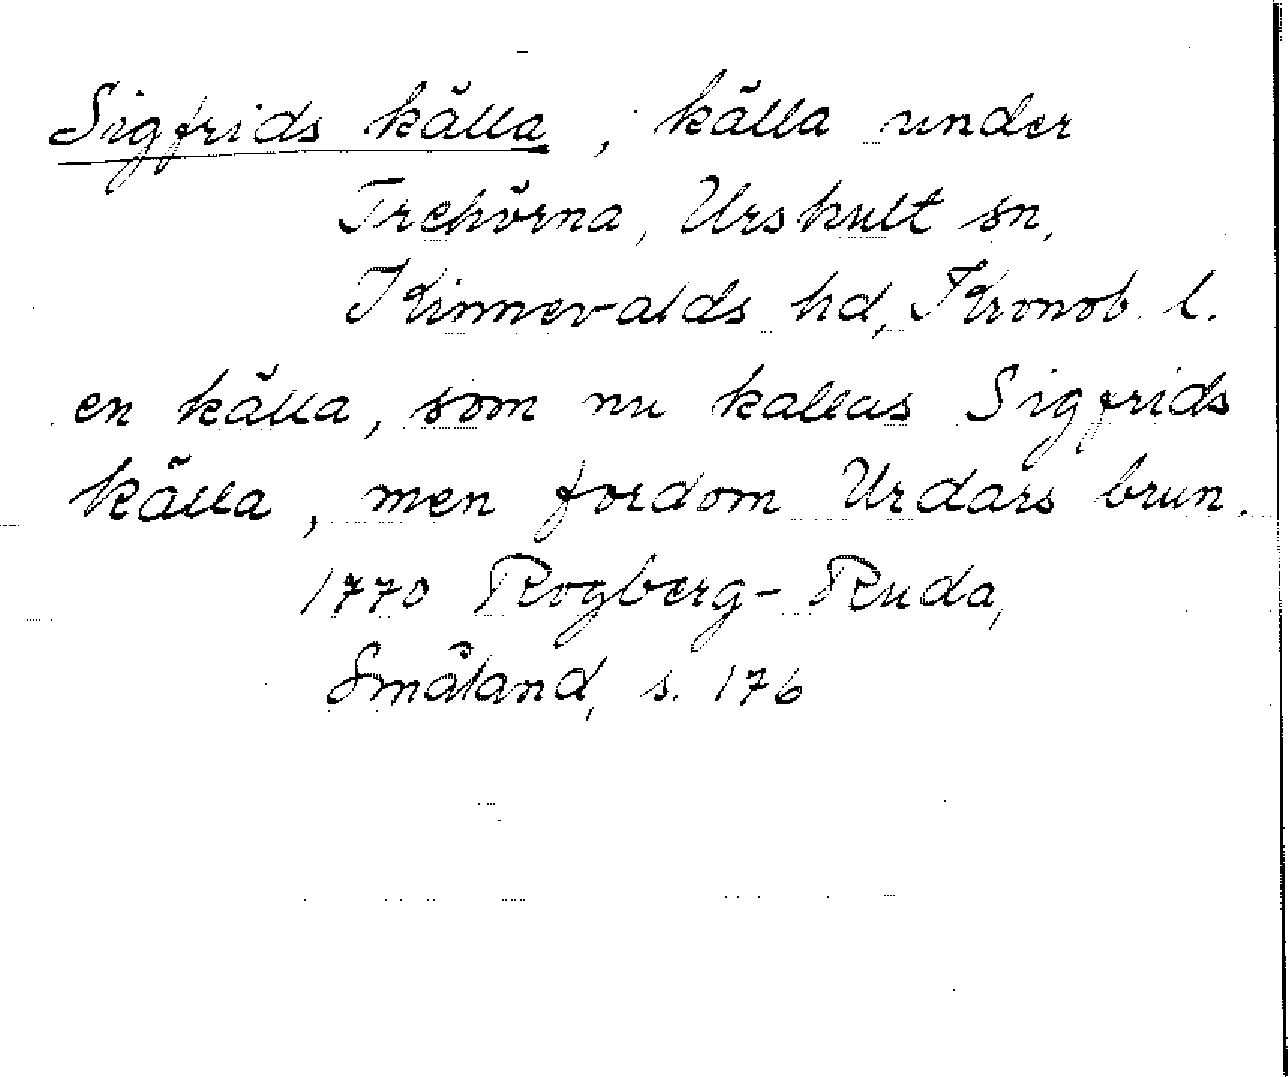 Sigfrids källa, källa under
Trehörna, Urshult sn,
Kinnevalds hd, Kronob. l.
en källa, som nu kallas Sigfrids
källa, men fordom Urdars brun.
1770 Rogberg-Ruda,
Småland, s. 176